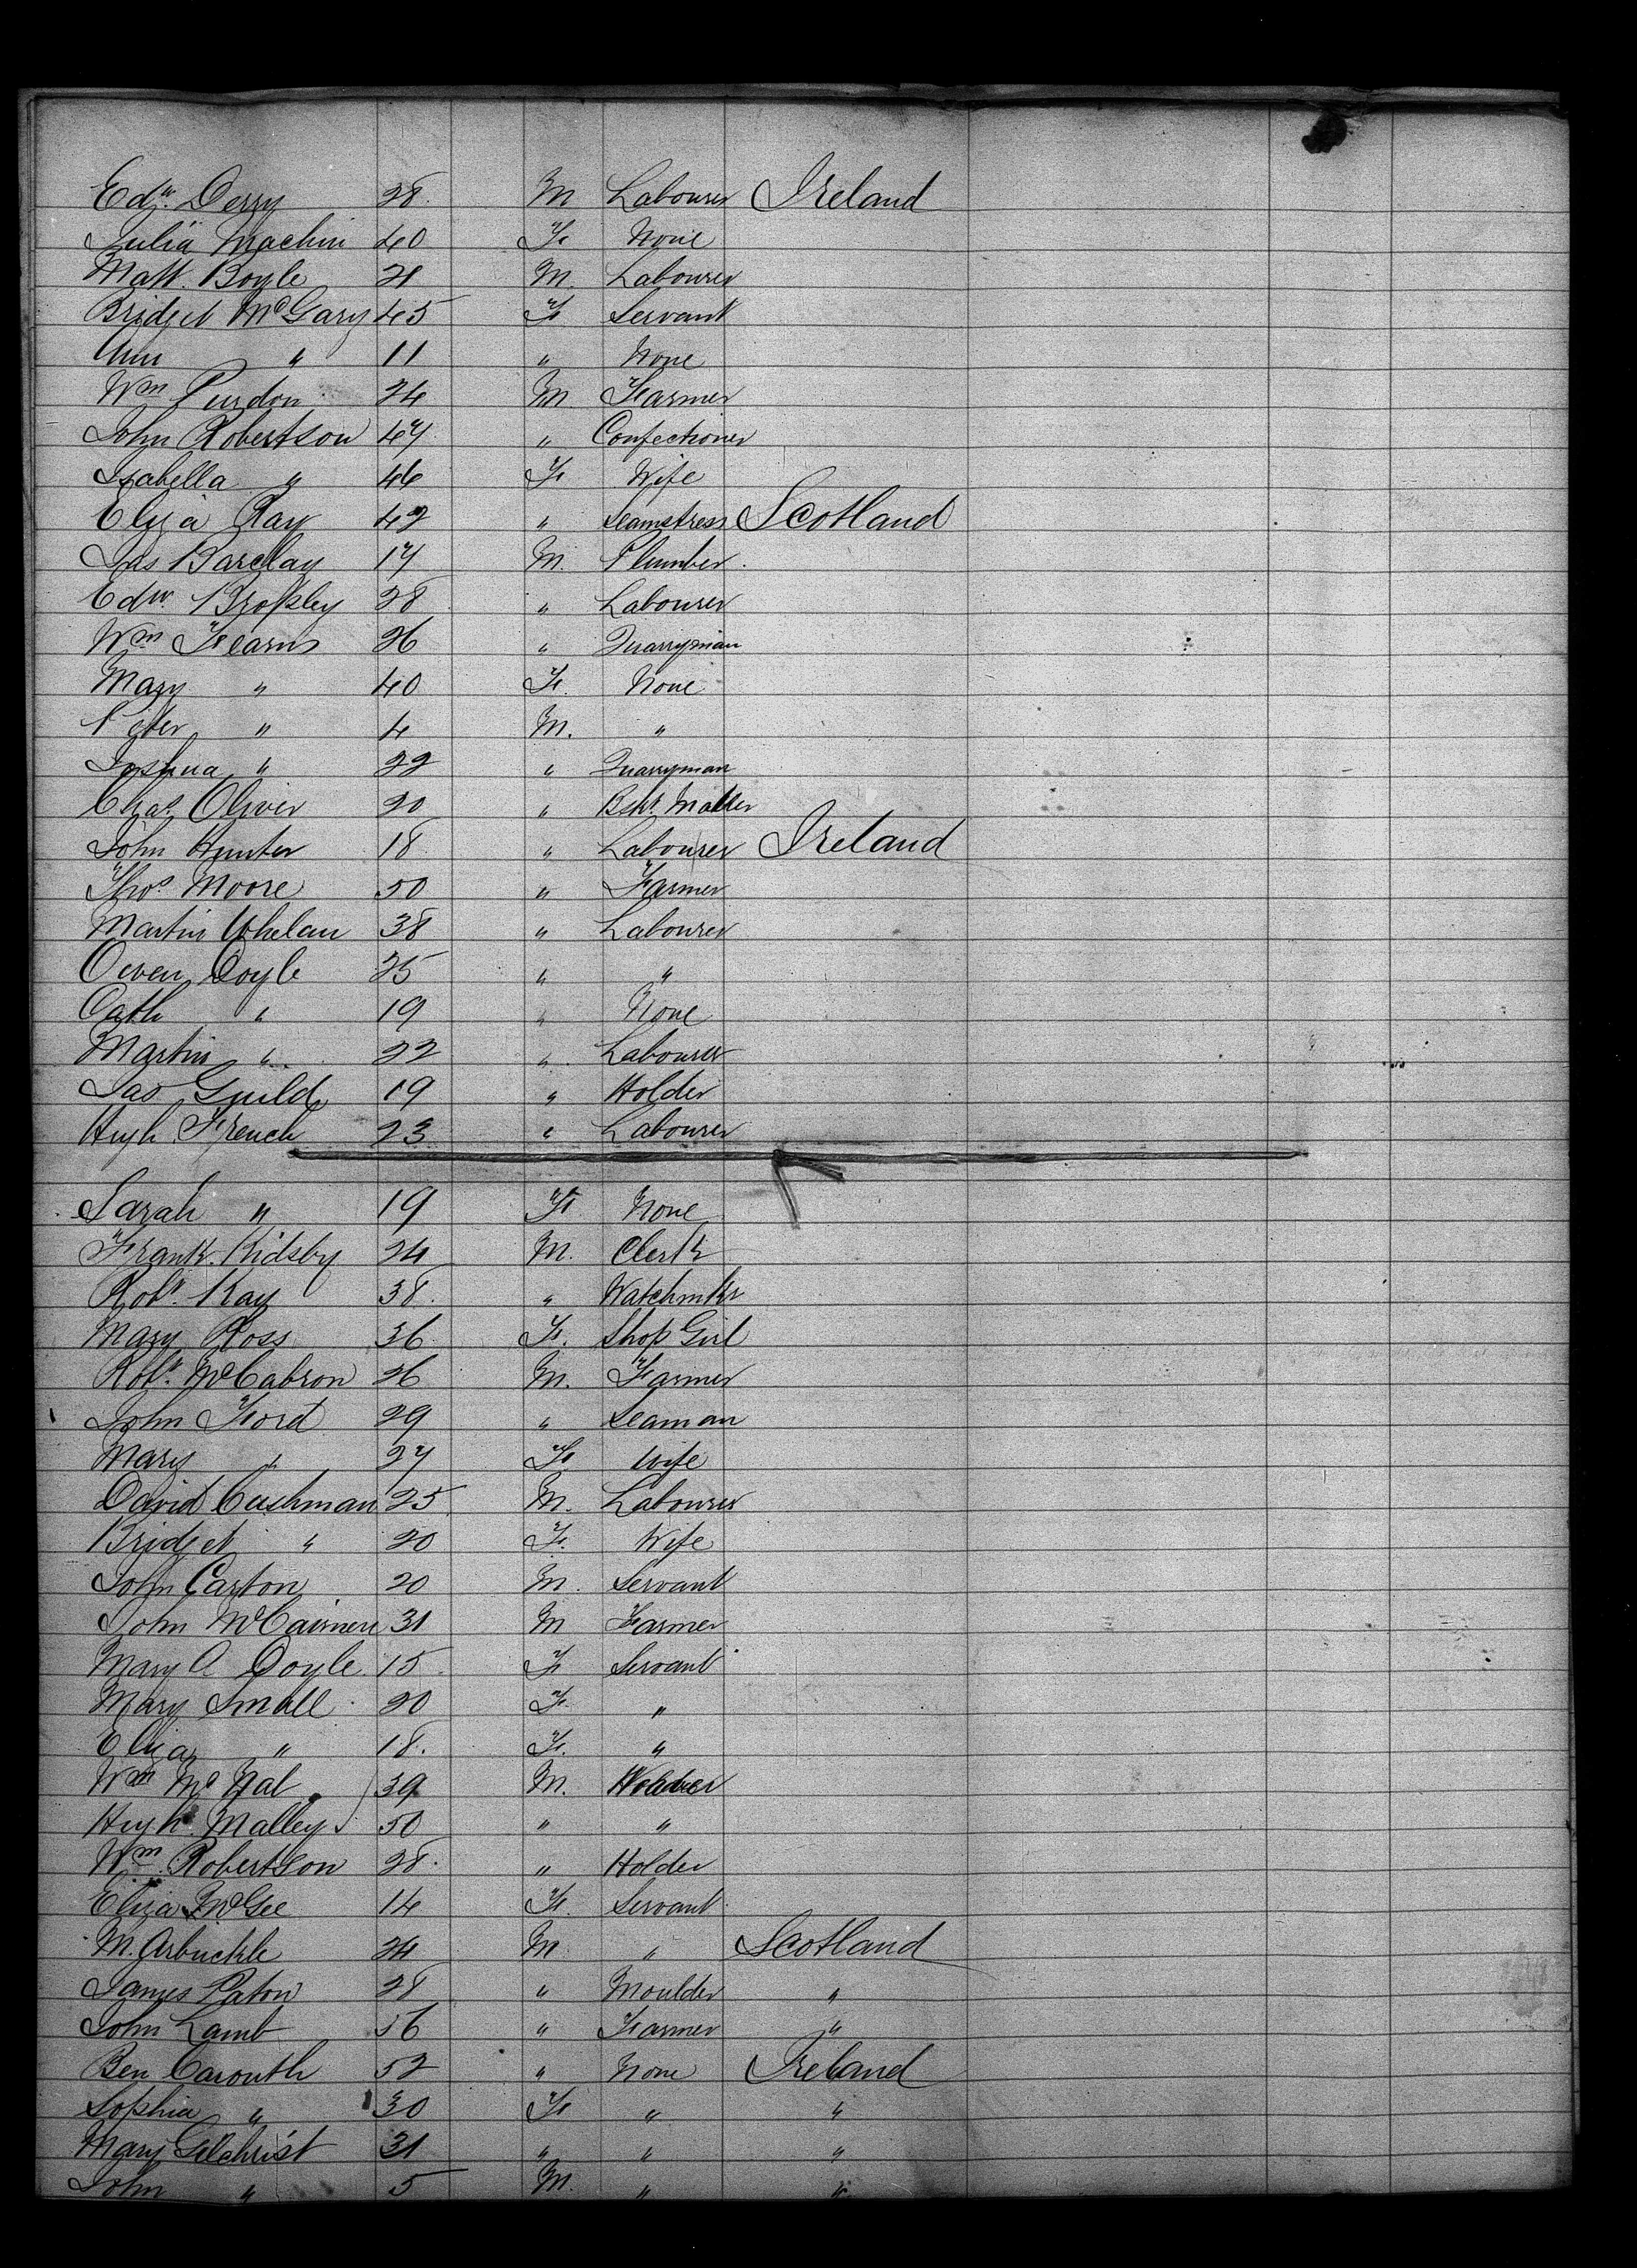 Edw. Derry 28. M Labourer Ireland
Julia Machin 40 F. None
Matt. Boyle 21 M. Labourer
Bridget McGary 45 F Servant
Ann " 11 " None
Wm Purdon 24 M Farmer
John Robertson 47 " Confectioner
Isabella " 46 F. Wife
Eliza Ray 42 " Seamstress Scotland
Jas Barclay 17 M. Plumber.
Edw. 28 " Labourer
Wm Fearns 26 " Quarryman
Mary " 40 F. None
Peter " 4 M. "
Joshua " 22 " Quarryman
Chas Oliver 20 "
John Hunter 18 " Labourer Ireland
Thos Moore 50 " Farmer
Martin Whelan 38 " Labourer
Owen Doyle 25 " "
Cath " 19 " None
Martin " 22 " Labourer
Jas Guild 19 " Holder
Hugh French 23 " Labourer
Sarah " 19 F. None
Frank. Kidsby 24 M. Clerk
Robt. Kay 38. " Watchmkr
Mary Ross 36 F. Shop Girl
Robt. McCabron 26 M. Farmer
John Ford 29 " Seaman
Mary " 27 F. Wife
David Cushman 25 M. Labourer
Bridget " 20 F. Wife
John Carton 20 M. Servant
John 31 M Farmer
Mary A Doyle 15 F Servant
Mary Small 20 F. "
Eliza " 18. F. "
Wm Mc Nal 39 M.
Hugh Malley 50 " "
Wm. Robertson 28. " Holder
Eliza McGee 14 F. Servant
M. Arbuckle 24 M " Scotland
James Paton 28 " Moulder "
John Lamb 56 " Farmer "
Ben Carouth 52 " None Ireland
Sophia " 30 F " "
Mary Gilchrist 31 " " "
John " 5 M. " "